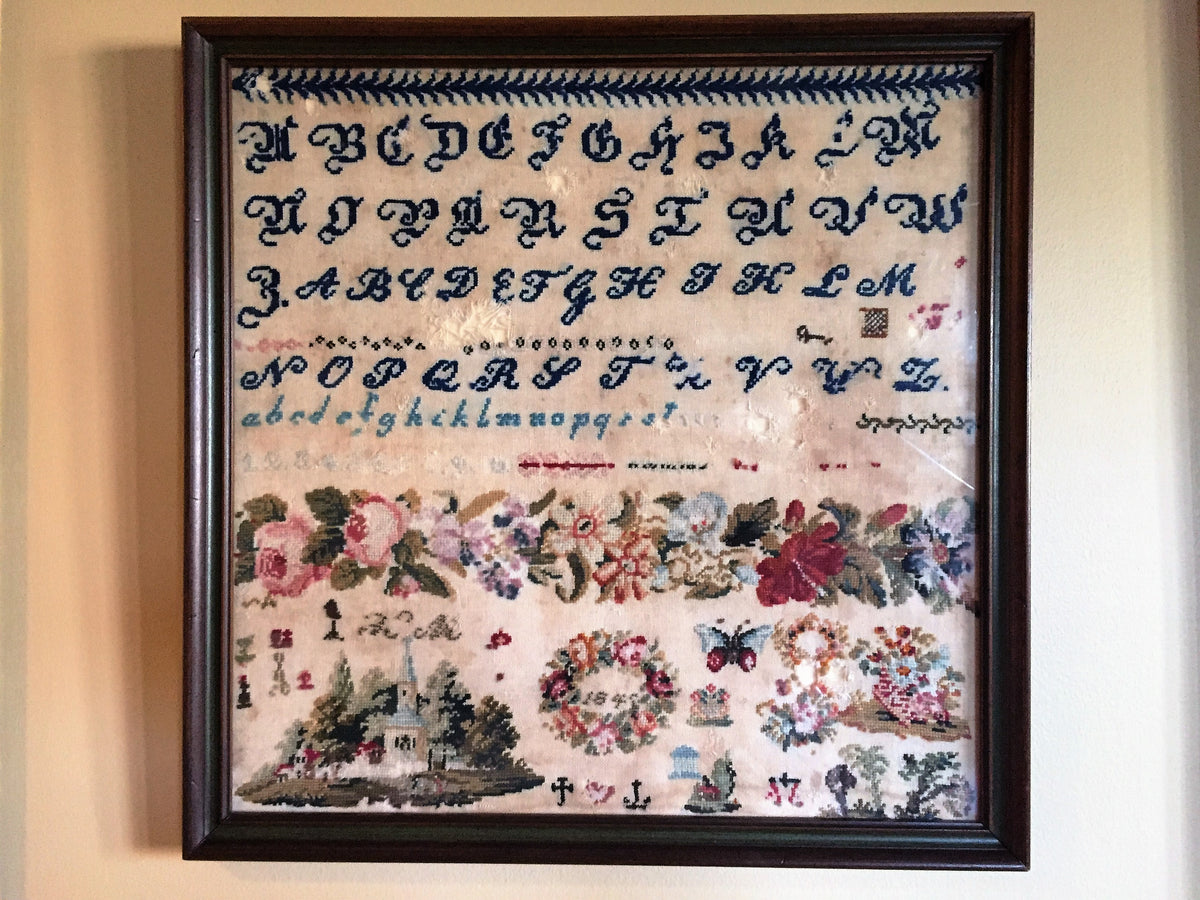 A B C D E F G H I K L M
N O P Q R S T U V W
Z. A B C D E F G H I K L M
N O P Q R S T V Z.
a b c d e f g h i k l m n o p q r s t
1 2 3 4